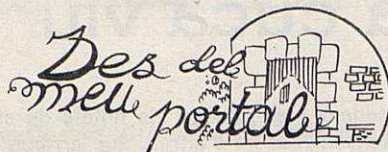 Des del
meu
portal